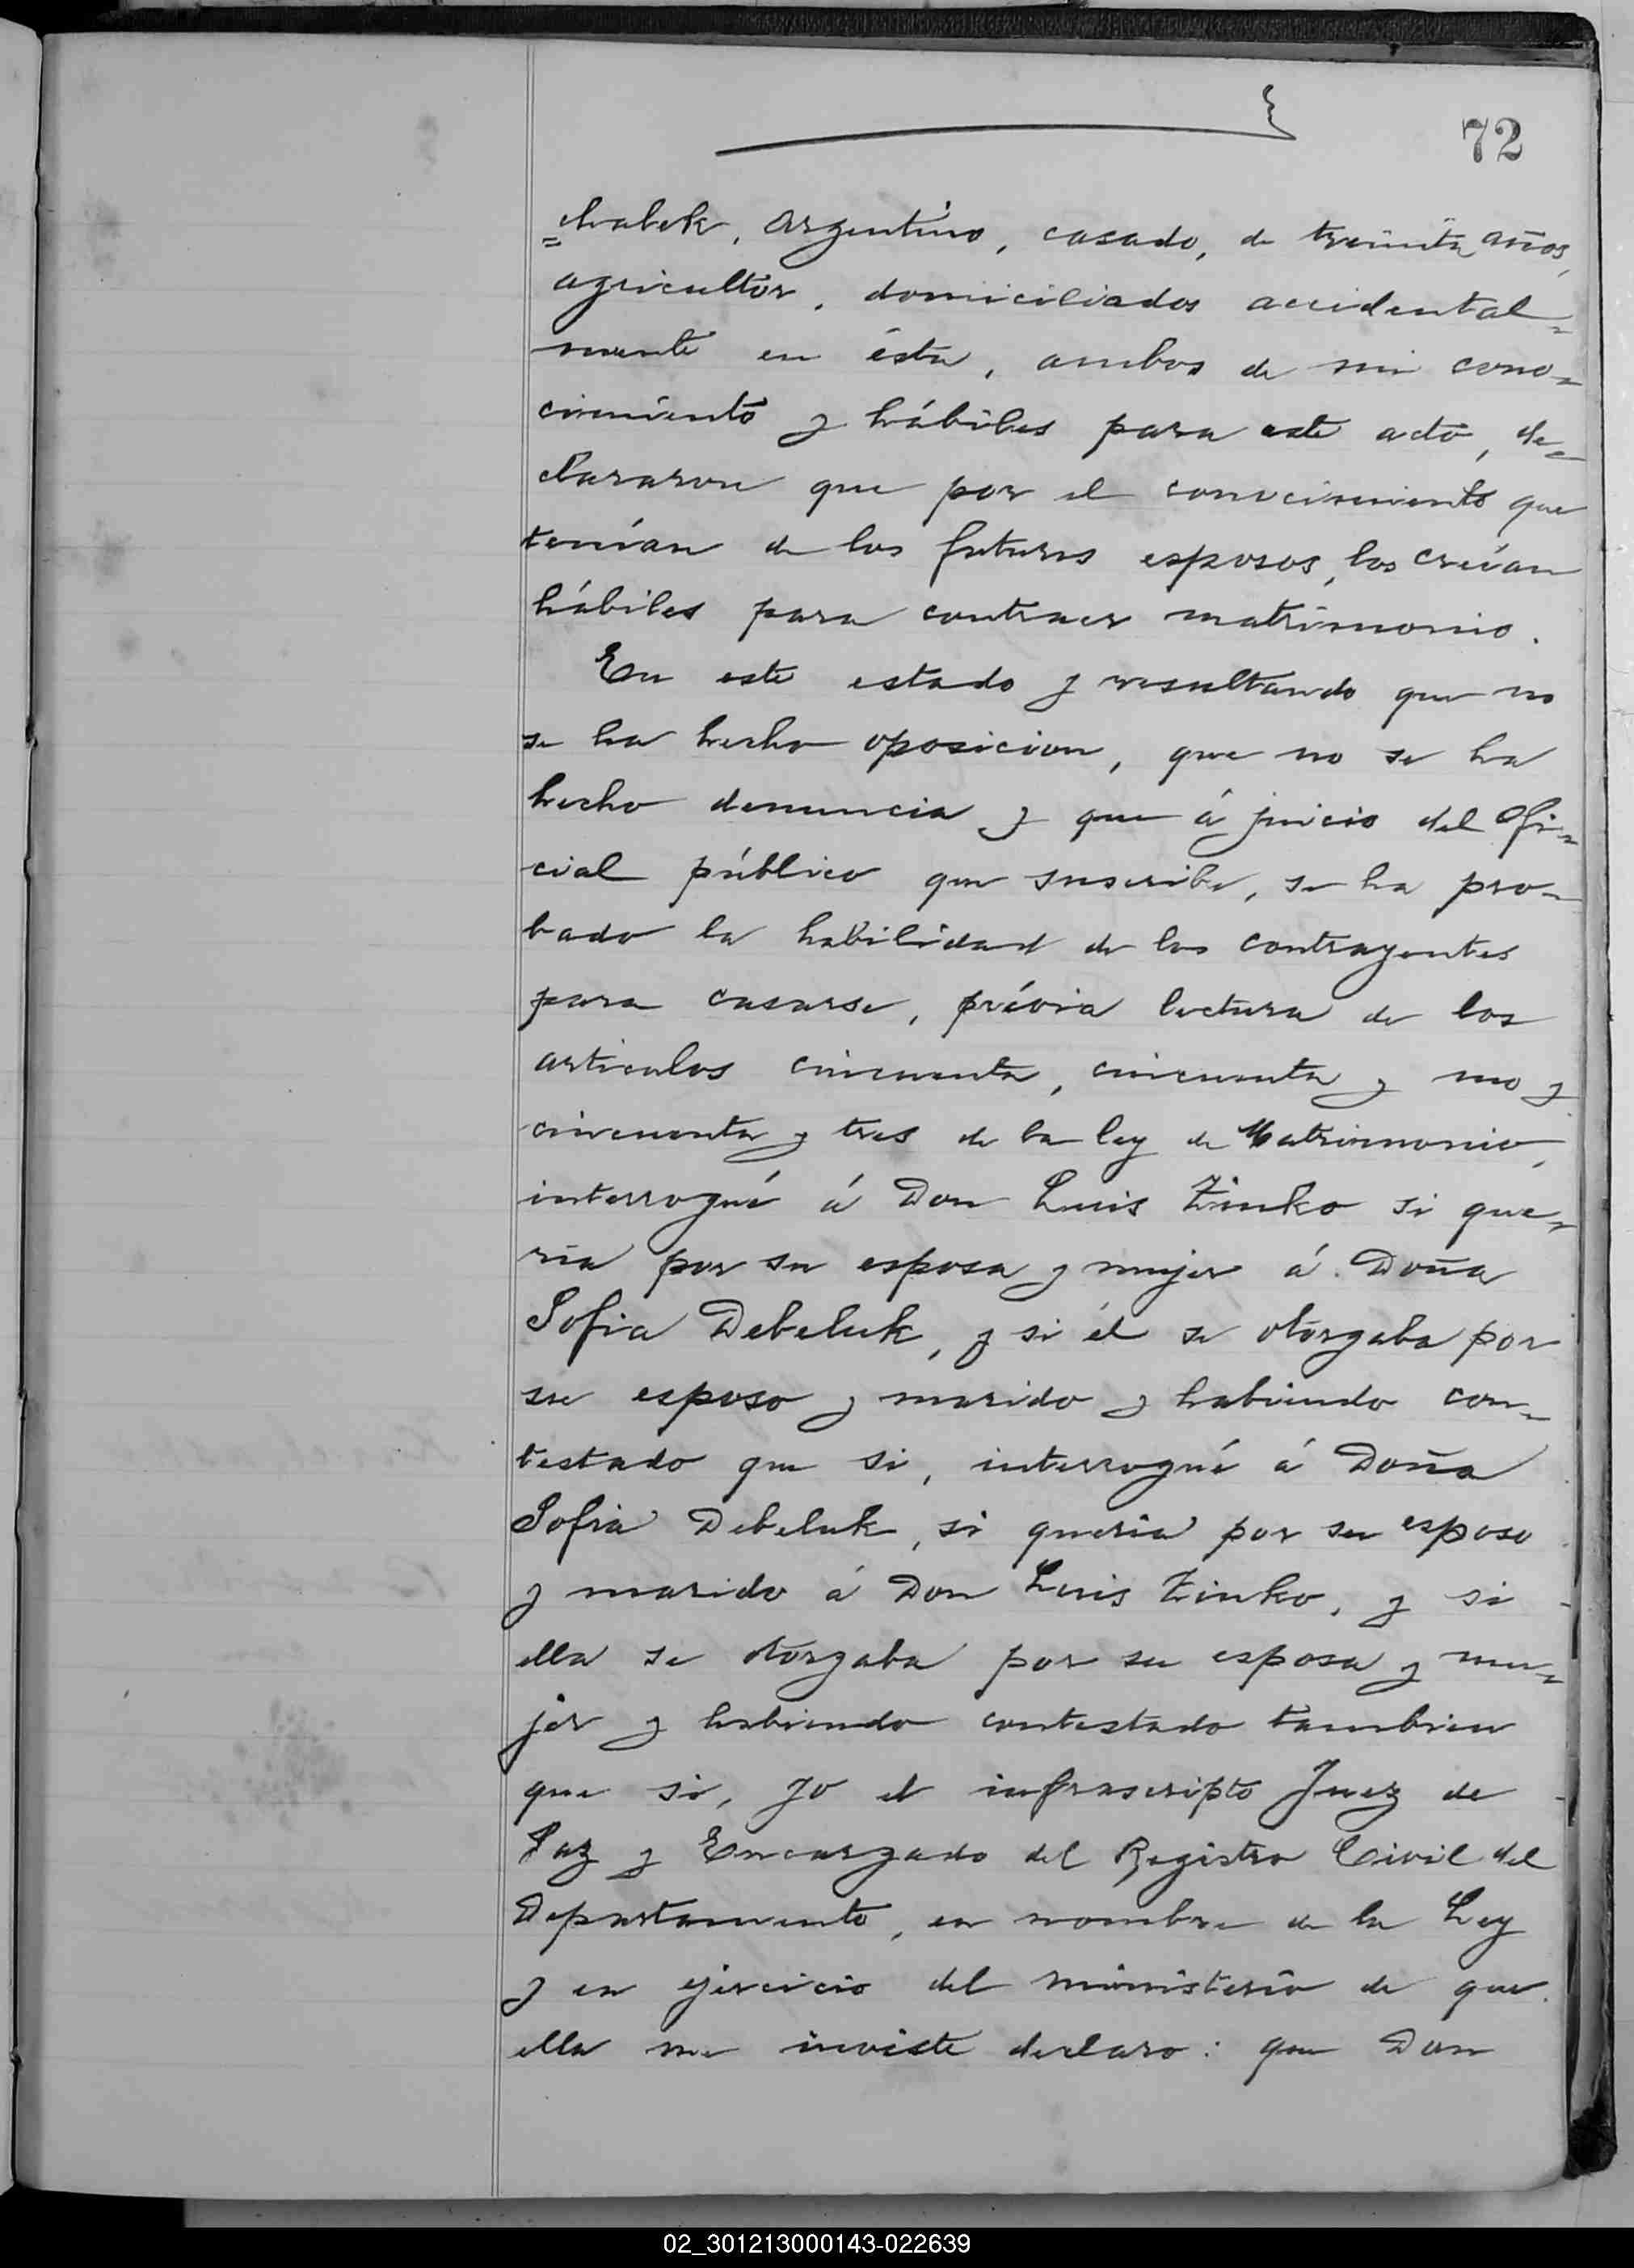 72
=chabek, Argentino, casado, de treinta años,
agricultor, domiciliados accidental=
mente en ésta, ambos de mi cono=
cimiento y hábiles para este acto, de=
clararon que por el conocimiento que
tenían de los futuros esposos, los creían
hábiles para contraer matrimonio.
En este estado y resultando que no
se ha hecho oposicion, que no se ha
hecho denuncia y que á juicio del Ofi=
cial público que suscribe, se ha pro=
bado la habilidad de los contrayentes
para casarse, prévia lectura de los
articulos cincuenta, cincuenta y uno y
cincuenta y tres de la ley de Matrimonio,
interrogué á Don Luis Zinko si que=
ria por su esposa y mujer á Doña
Sofia Debeluk, y si él se otorgaba por
su esposo y marido y habiendo con=
testado que si, interrogué á Doña
Sofia Debeluk, si queria por su esposo
y marido á Don Luis Zinko, y si
ella se otorgaba por su esposa y mu=
jer y habiendo contestado tambien
que si, yo el infrascripto Juez de
Paz y Encargado del Registro Civil del
Departamento, en nombre de la Ley
y en ejercicio del ministerio de que
ella me inviste declaro: que Don
02_301213000143-022639